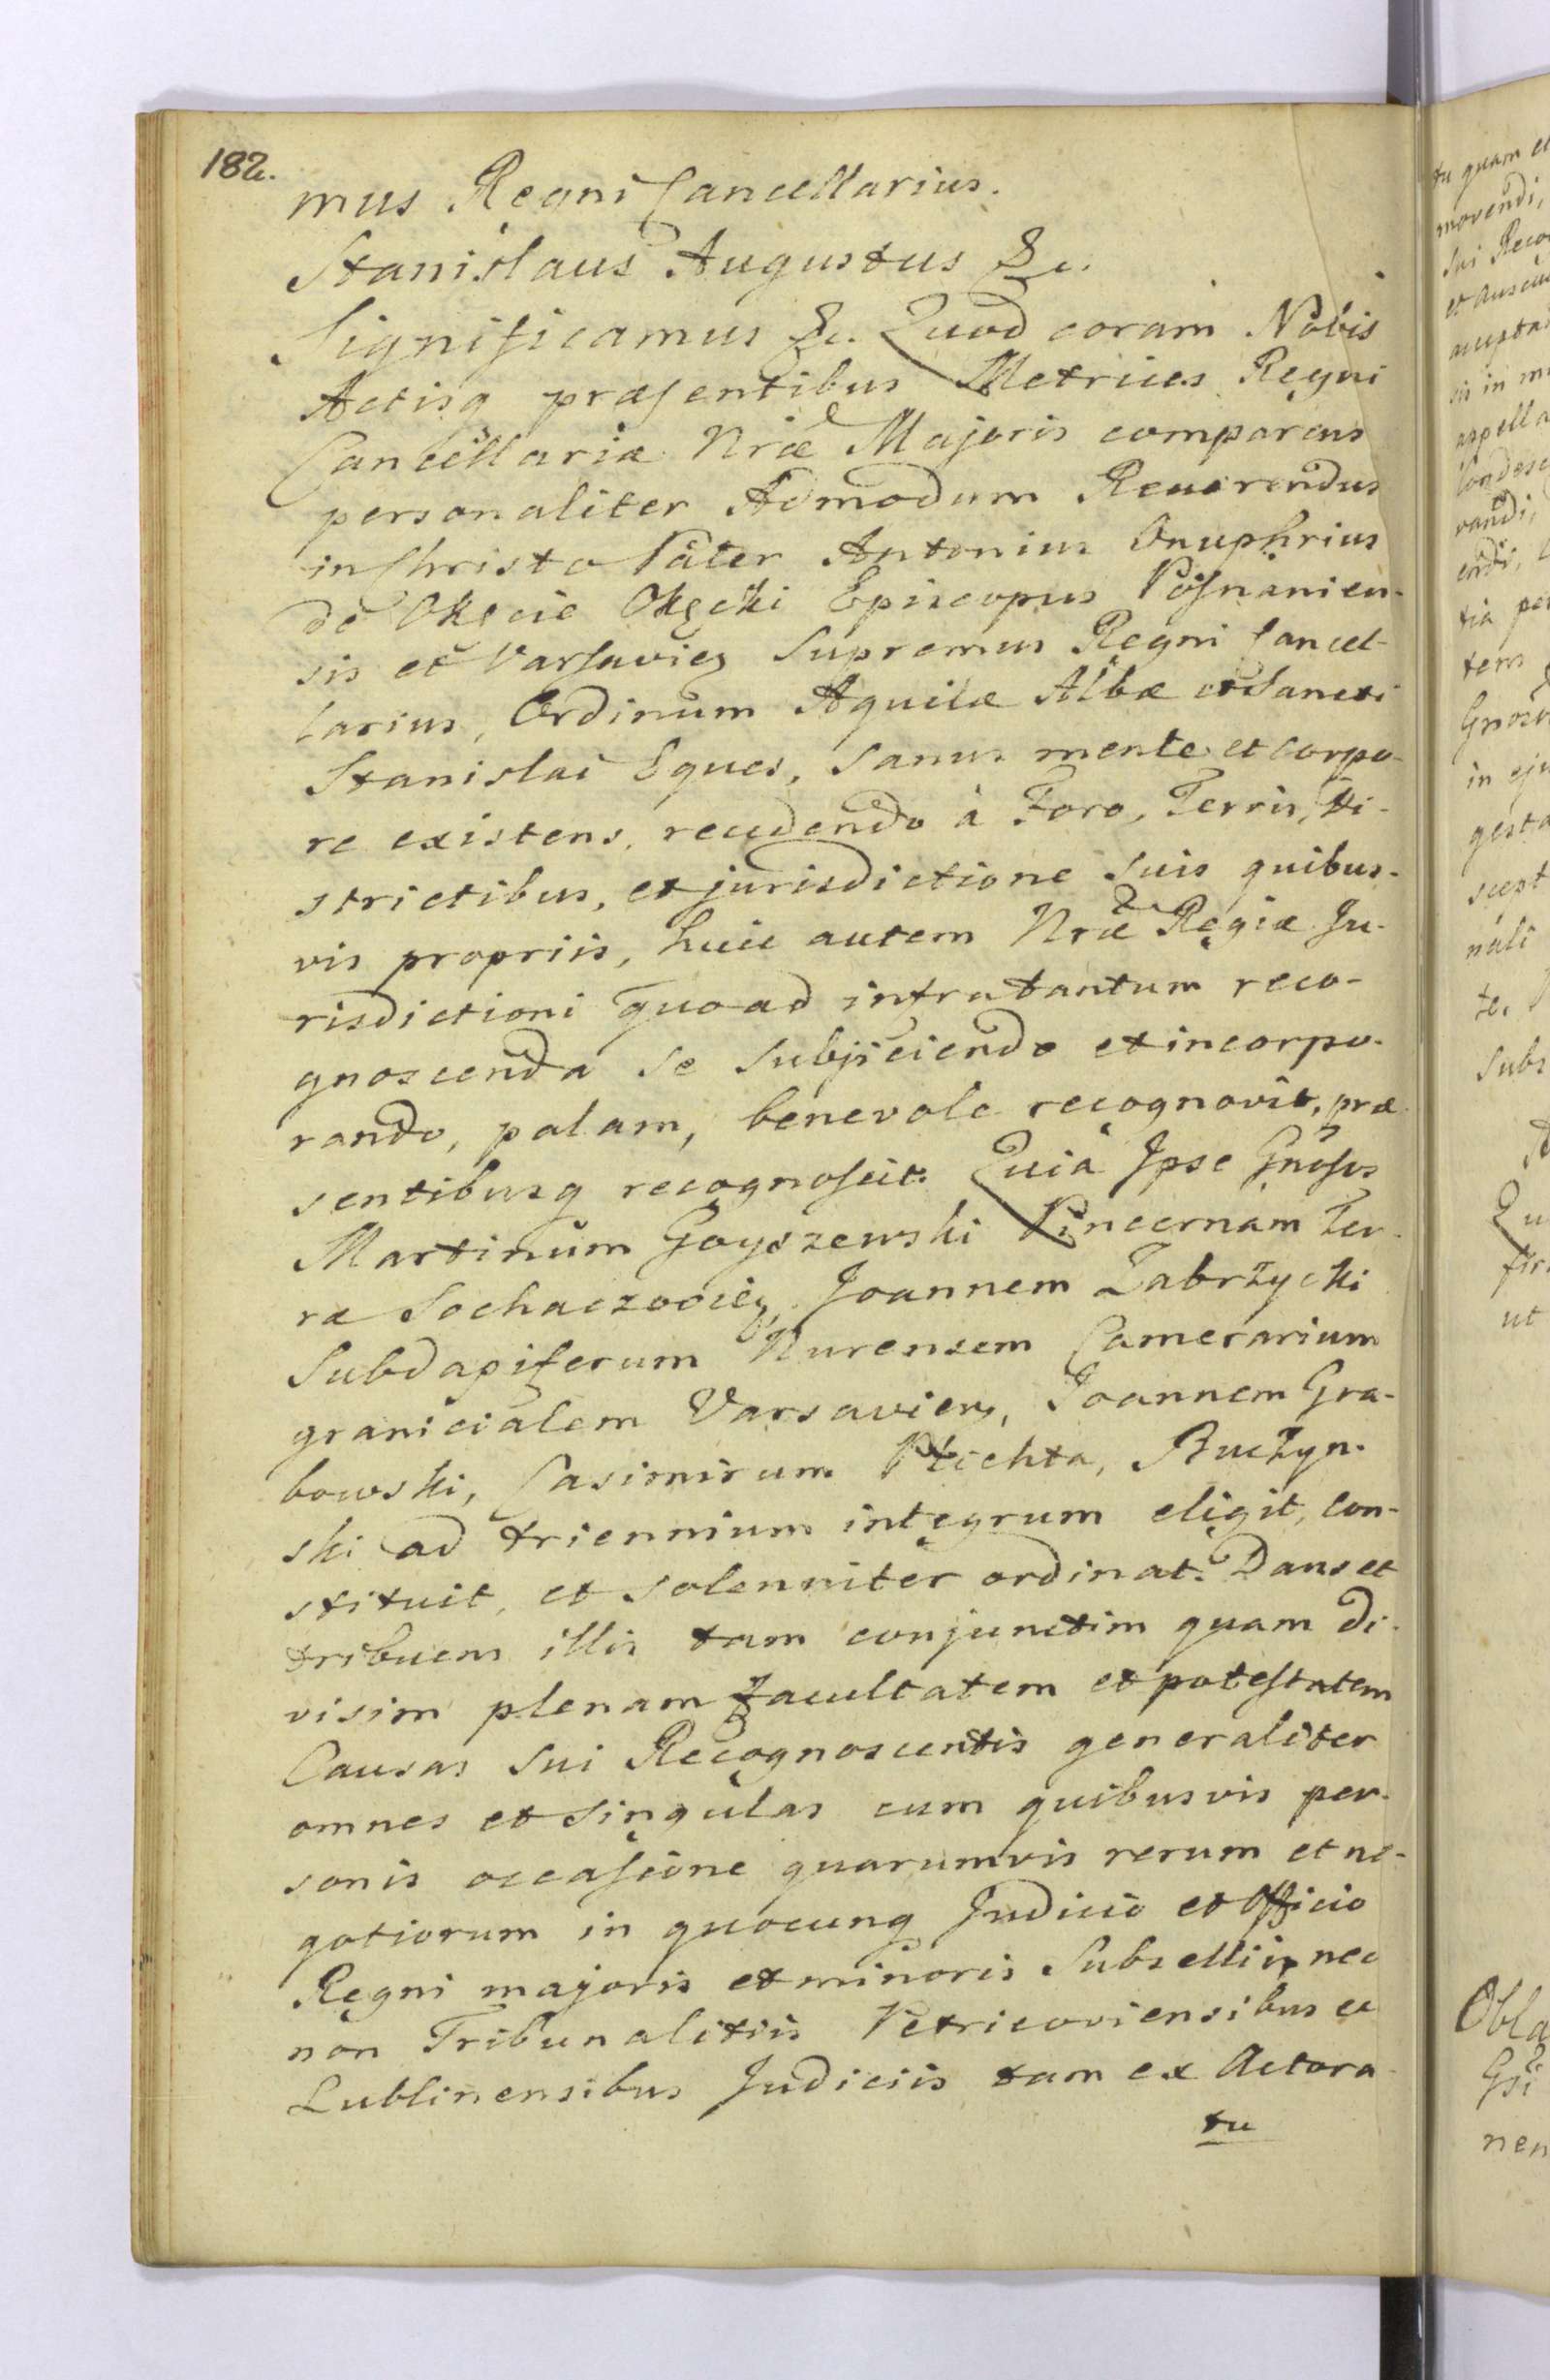 182.
mus Regni Cancellarius.
Stanislaus Augustus &c.
Significamus &c. Quod coram Nobis
Actisq præsentibus Metrices Regni
Cancellariæ Nræ Majoris comparens
personaliter Admodum Reverendus
in Christo Pater Antonius Onuphrius
de Okęcie Okęcki Episcopus Posnanien-
sis et Varsavien Supremus Regni Cancel-
larius, Ordinum Aquilæ Albæ et Sancti
Stanislai Eques, sanus mente et corpo-
re existens, recedendo à Foro, Terris, Di-
strictibus, et jurisdictione suis quibus-
vis propriis, huic autem Nræ Regiæ Ju-
risdictioni quoad infra tantum reco-
gnoscenda se subjiciendo et incorpo-
rando, palam, benevole recognovit, præ
sentibusq recognoscit. Quia Ipse Gnosos
Martinum Goyszewski Pincernam Ter-
ræ Sochaczovien, Joannem Zabrzycki
Subdapiferum Nurensem Camerarium
granicialem Varsavien, Joannem Gra-
bowski, Casimirum Plichta, Buczyn-
ski ad triennium integrum eligit, con-
stituit, et solenniter ordinat. Dans et
tribuens illis tam conjunctim quam di-
visim plenam facultatem et potestatem
Causas sui Recognoscentis generaliter
omnes et singulas cum quibusvis per-
sonis occasione quarumvis rerum et ne-
gotiorum in quocunq Judicio et Officio
Regni majoris et minoris Subsellii, nec
non Tribunalitiis Petricoviensibus et
Lublinensibus Judiciis tam ex Actora
tu
tu quam
movendi,
sui
sis in
appella
vandi,
tia
tem
in
gesta
scept
nali
te.
Subs
ut
Obla
nen